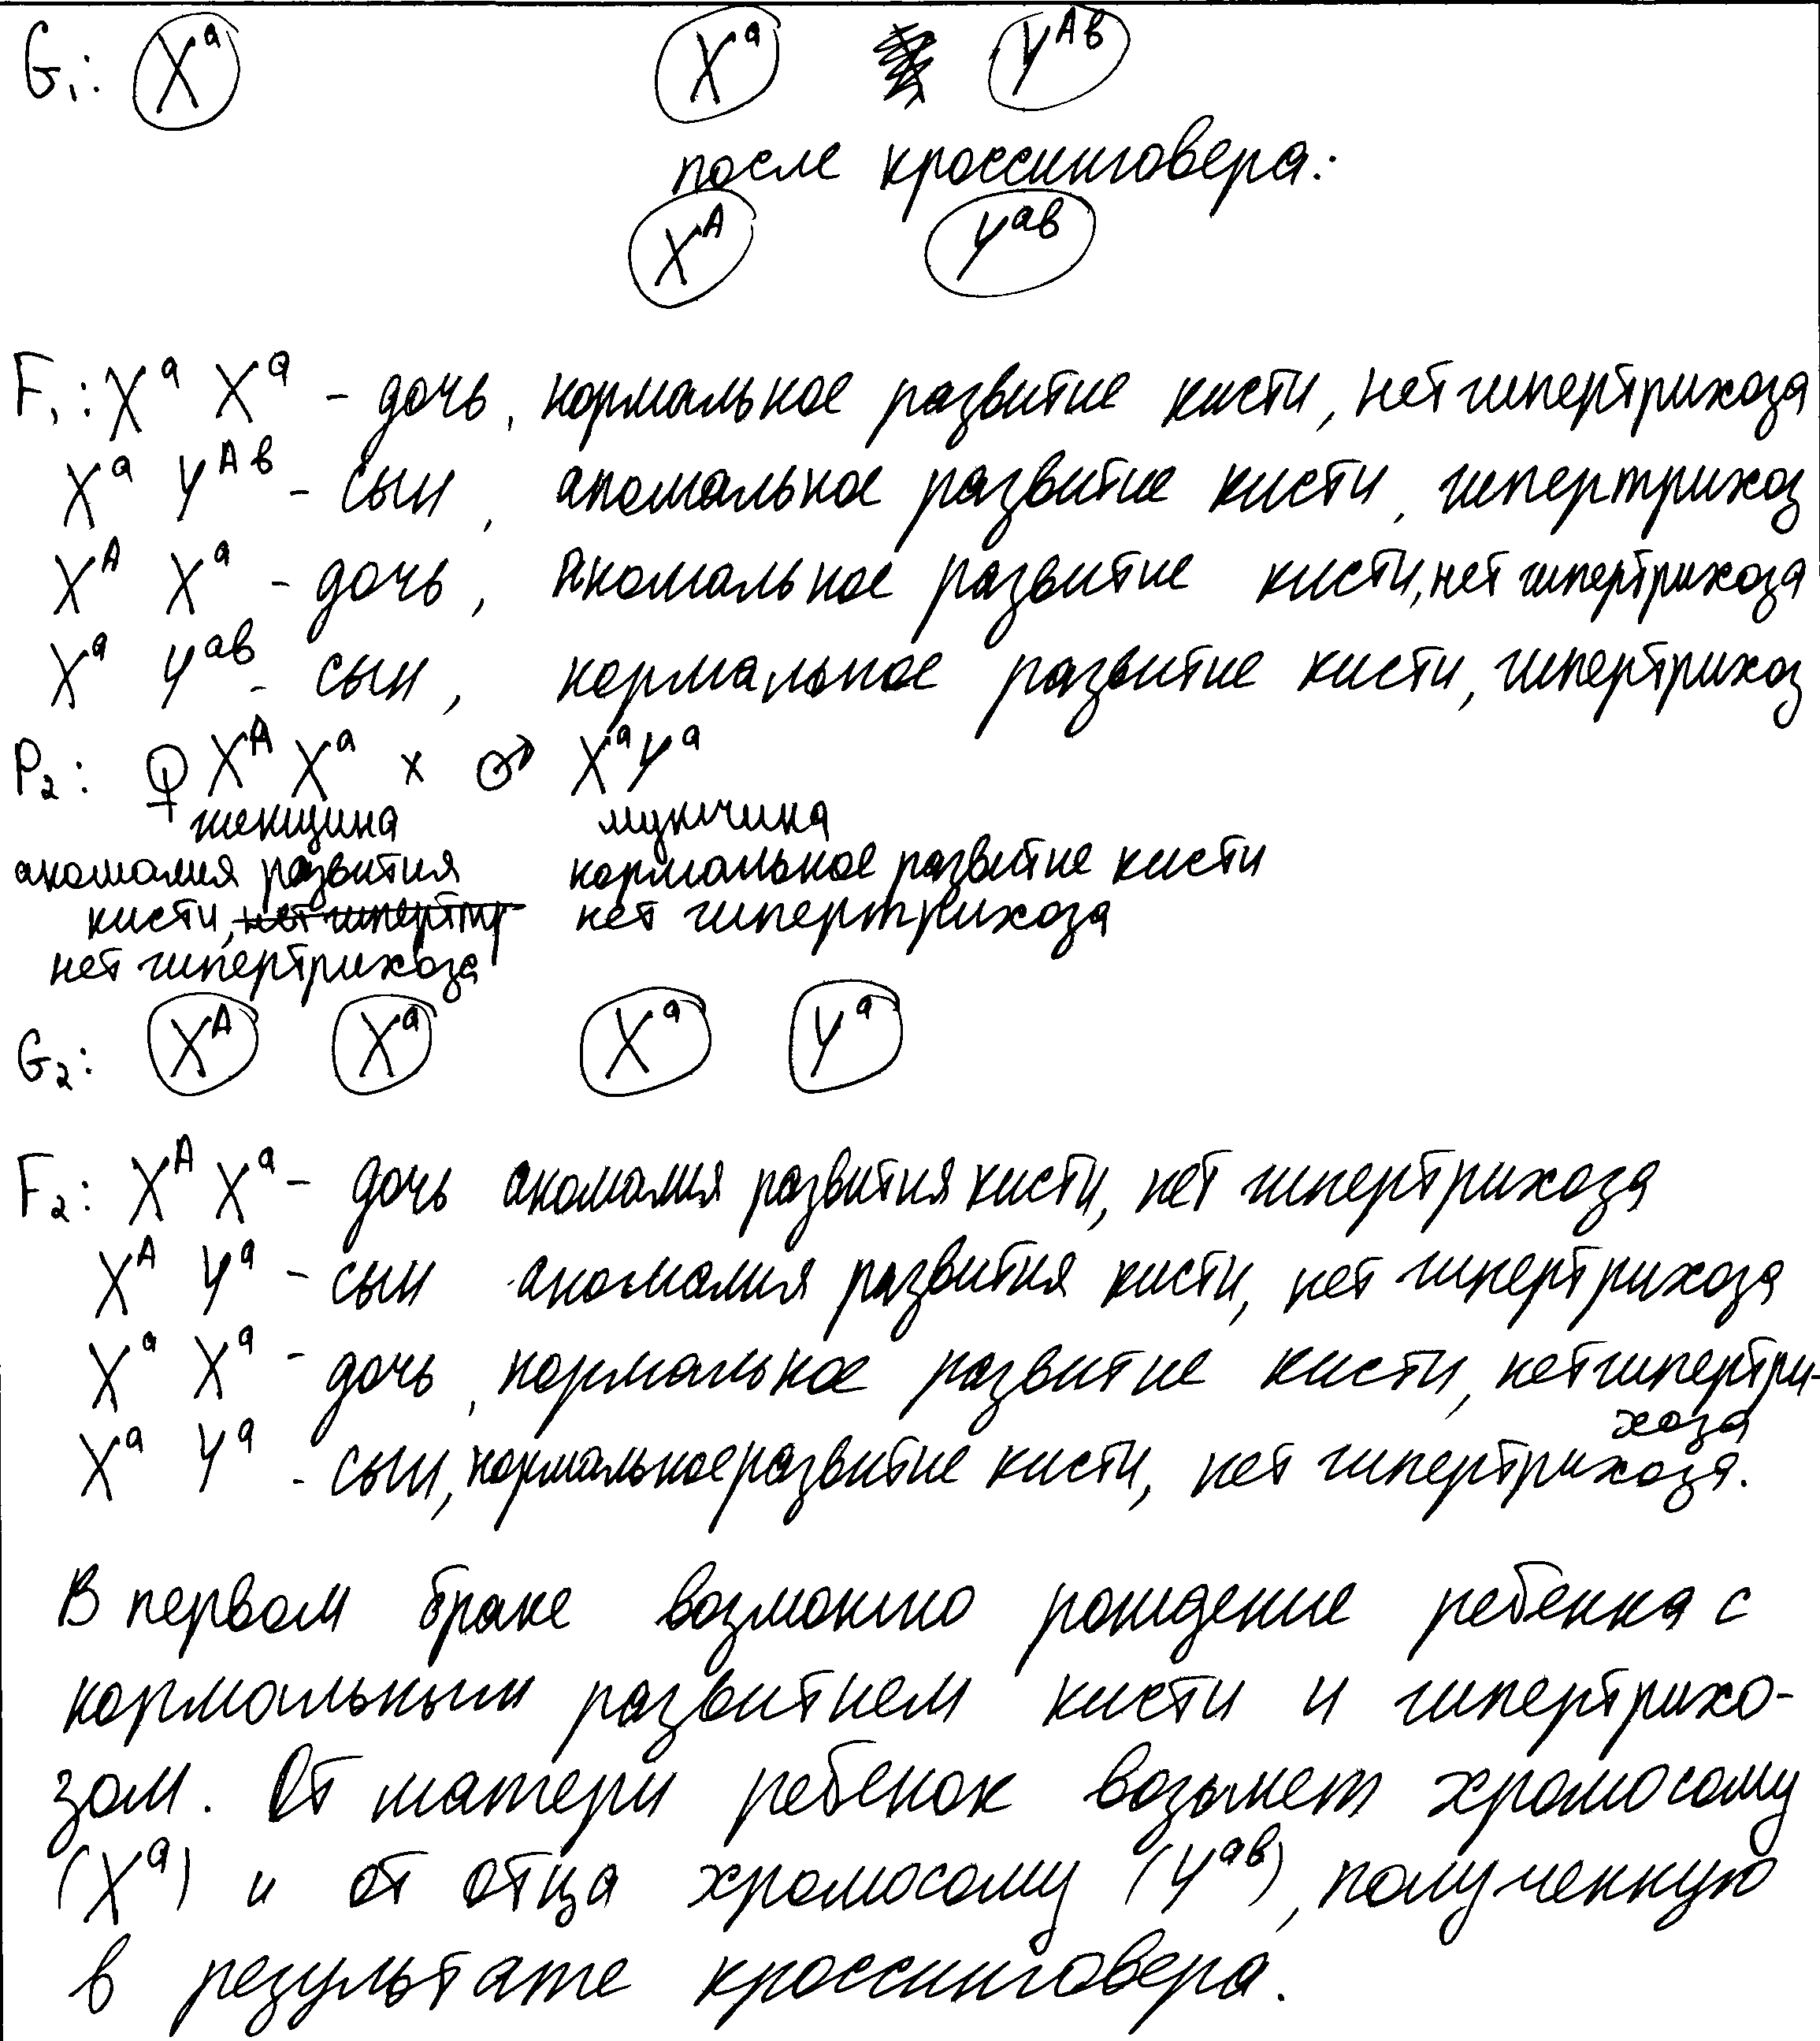 G₁: Xᵃ Xᵃ Yᴬᵇ
после кроссинговера:
Xᴬ Yᵃᵇ
F₁: Xᵃ Xᵃ - дочь, нормальное развитие кисти, нет гипертрихоза
Xᵃ Yᴬᵇ - сын, аномальное развитие кисти, гипертрихоз
Xᴬ Xᵃ - дочь, аномальное развитие кисти, нет гипертрихоза
Xᵃ Yᵃᵇ - сын, нормальное развитие кисти, гипертрихоз
P₂: ♀ Xᴬ Xᵃ x ♂ XᵃYᵃ
женщина мужчина
аномалия развития нормальное развитие кисти
кисти, нет гипертр нет гипертрихоза
нет гипертрихоза
G₂: Xᴬ Xᵃ Xᵃ Yᵃ
F₂: Xᴬ Xᵃ - дочь аномалия развития кисти, нет гипертрихоза
Xᴬ Yᵃ - сын аномалия развития кисти, нет гипертрихоза
Xᵃ Xᵃ - дочь, нормальное развитие кисти, нет гипертри-
хоза
Xᵃ Yᵃ - сын, нормальное развитие кисти, нет гипертрихоза.
В первом браке возможно рождение ребенка с
нормальным развитием кисти и гипертрихо-
зом. От матери ребенок возьмет хромосому
(Xᵃ) и от отца хромосому (Yᵃᵇ), полученную
в результате кроссинговера.